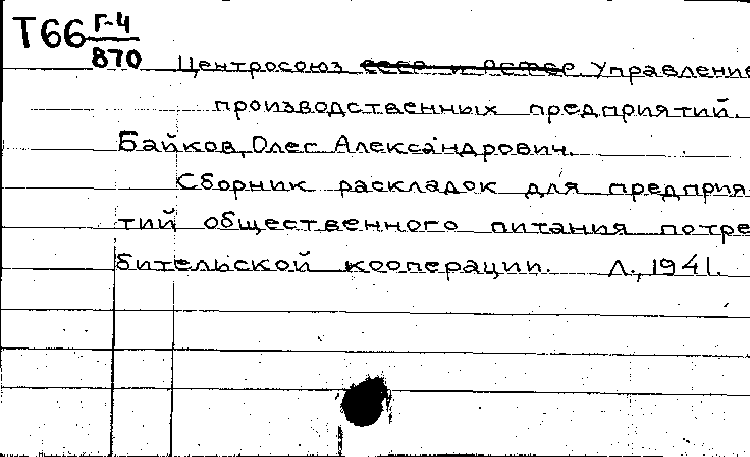 Т66 Г-4
870
Центросоюз СССР и РСФСР. Управление
производственных предприятий.
Байков, Олег Александрович.
Сборник раскладок для предприя-
тий общественного питания потре
бительской кооперации. Л., 1941.